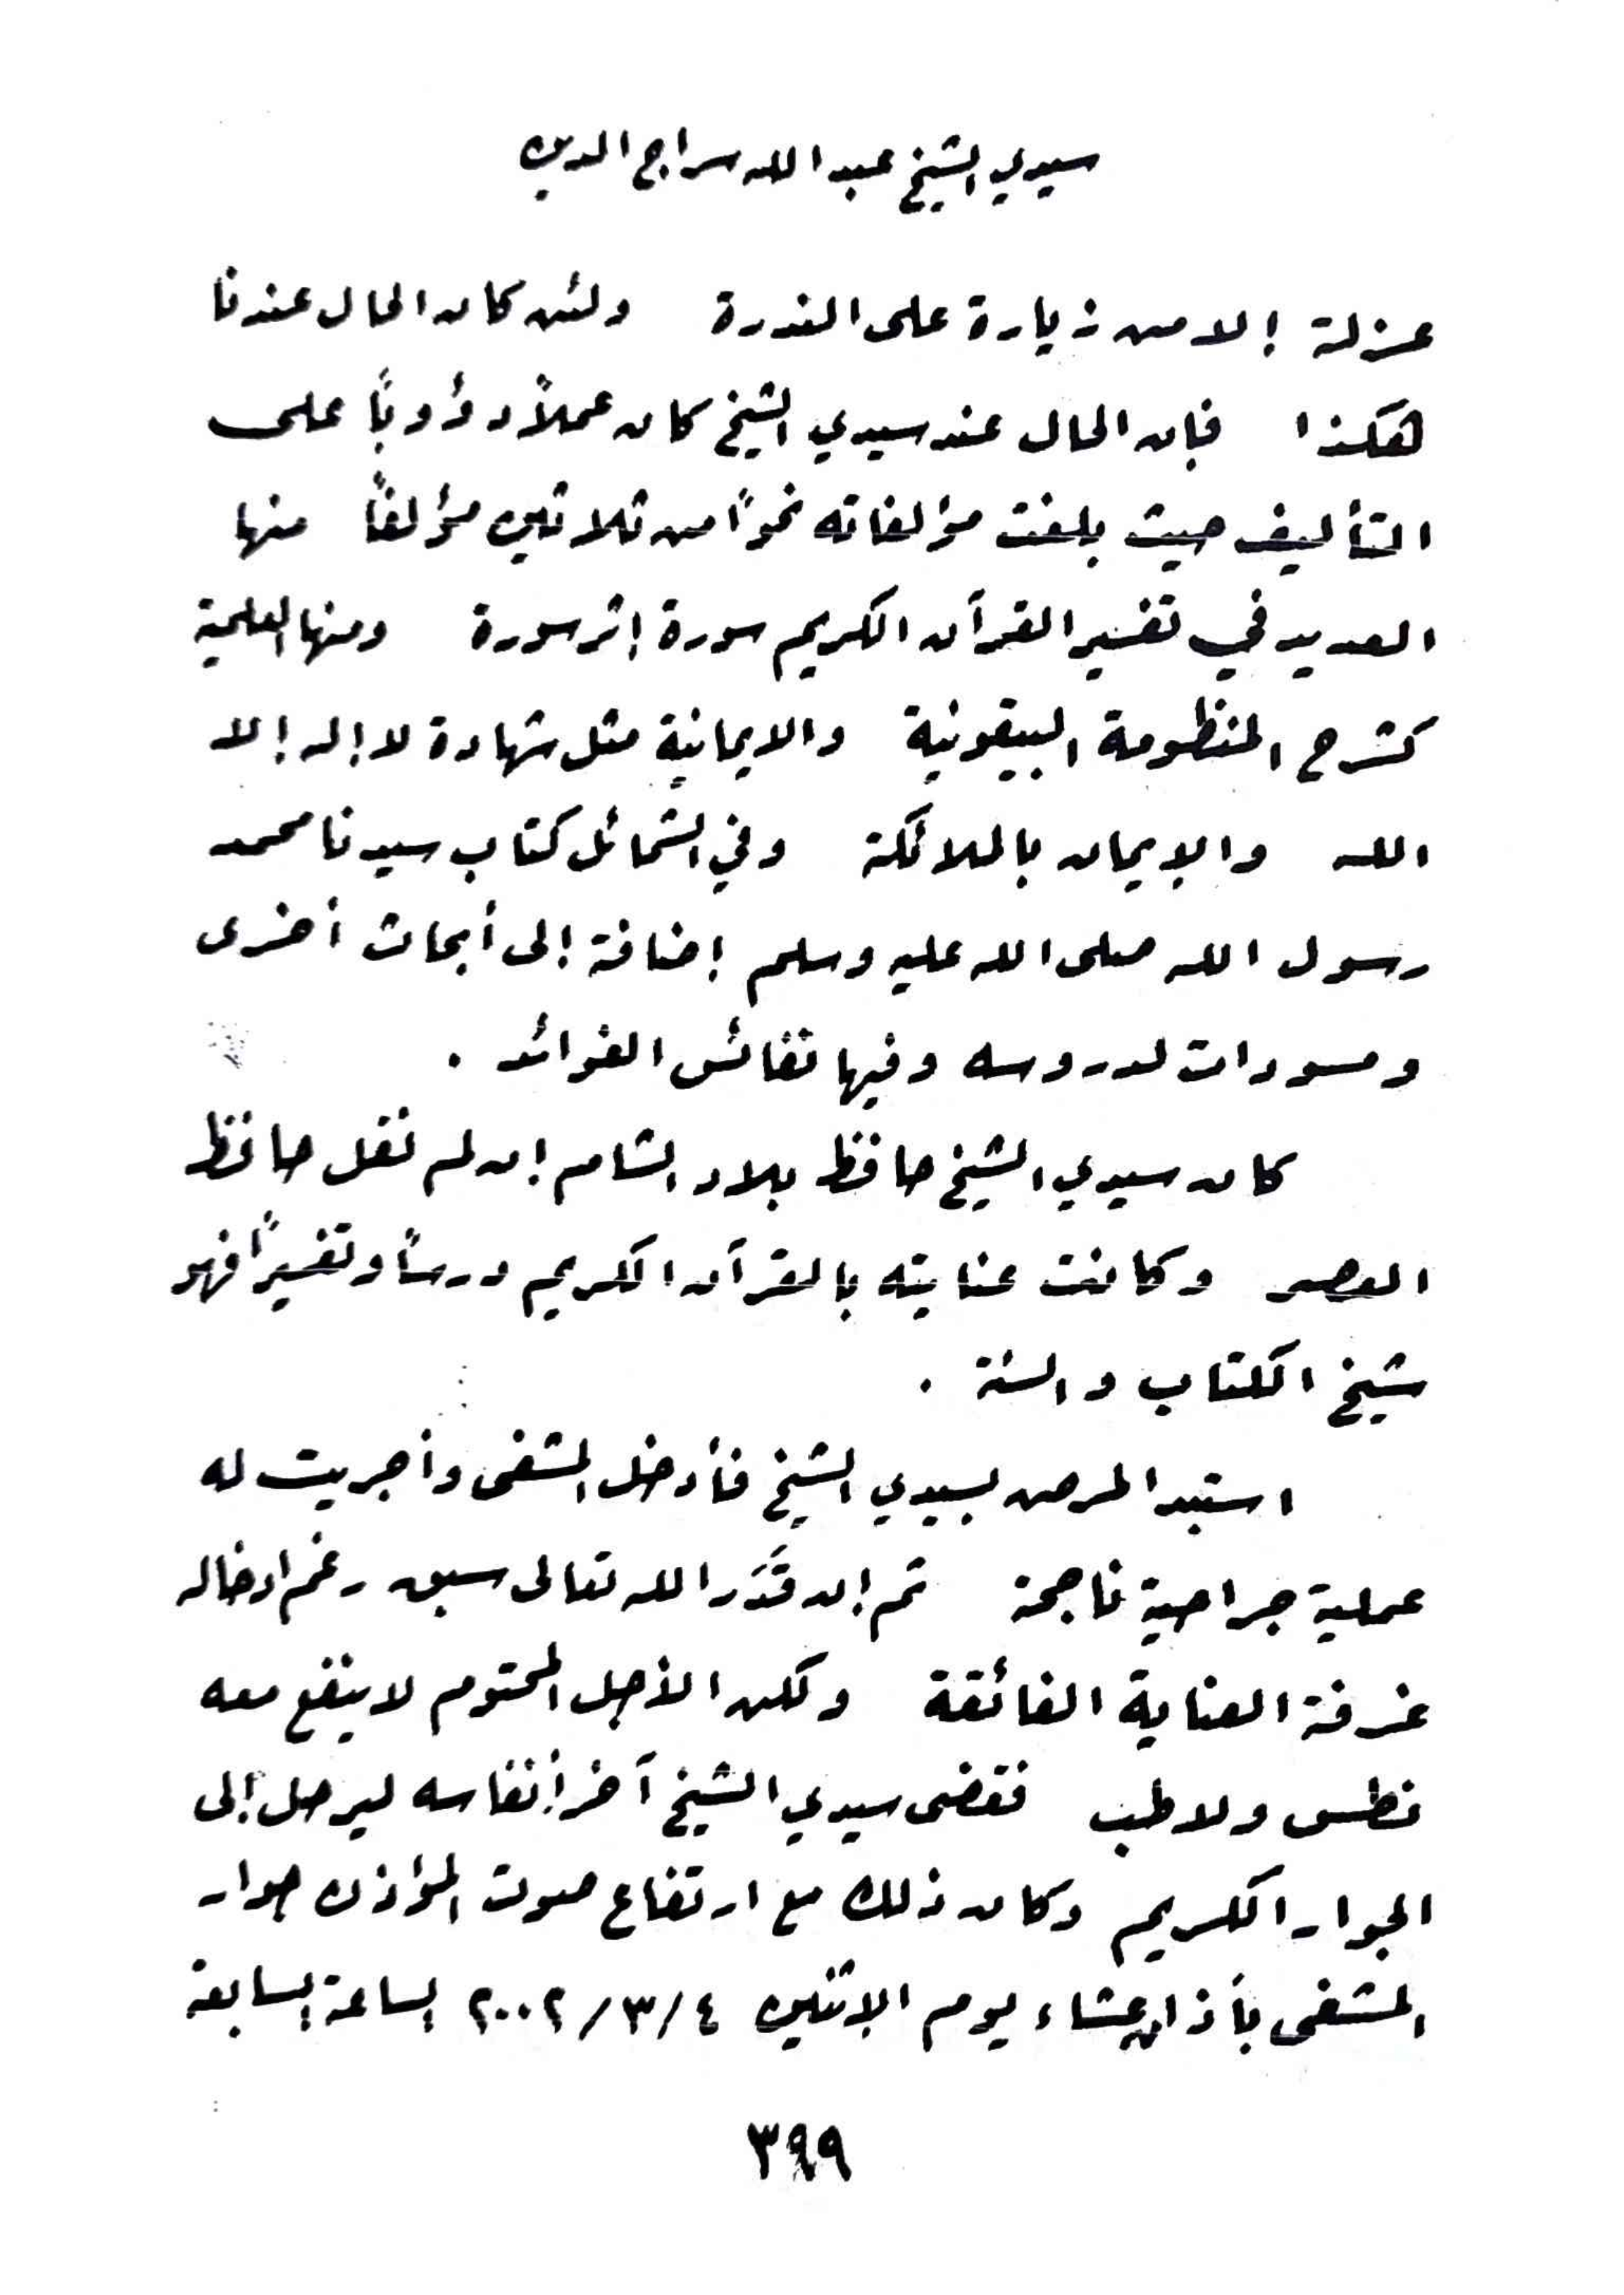 سيدي الشيخ عبد الله سراج الدين
عزلة إلا من زيارة على الندرة ولئن كان الحال عندنا
هكذا فإن الحال عند سيدي الشيخ كان عملاً دؤوباً على
التأليف حيث بلغت مؤلفاته نحواً من ثلاثين مؤلفاً منها
العديد في تفسير القرآن الكريم سورة إثر سورة ومنها العلمية
كشرح المنظومة البيقونية والايمانية مثل شهادة لا إله إلا
الله والإيمان بالملائكة وفي الشمائل كتاب سيدنا محمد
رسول الله صلى الله عليه وسلم إضافة إلى أبحاث أخرى
ومسودات لدروسه وفيها نفائس الفوائد .
كان سيدي الشيخ حافظ بلاد الشام إن لم نقل حافظ
العصر وكانت عنايته بالقرآن الكريم درساً وتفسيراً فهو
شيخ الكتاب والسنة .
استبد المرض بسيدي الشيخ فأدخل المشفى وأجريت له
عملية جراحية ناجحة ثم إن قَدَر الله تعالى سبق رغم ادخاله
غرفة العناية الفائقة ولكن الأجل المحتوم لا ينفع معه
نطس ولا طب فقضى سيدي الشيخ آخر أنفاسه ليرحل إلى
الجوار الكريم وكان ذلك مع ارتفاع صوت المؤذن جوار
المشفى بأذان عشاء يوم الإثنين ٢٠٠٢/٣/٤ الساعة السابعة
٣٩٩